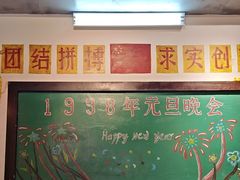 团结拼搏 求实创
1998年元旦晚会
Happy new year